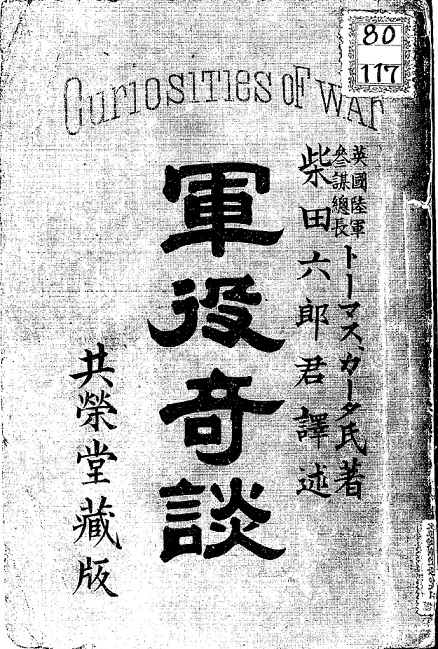 80
117
CURIOSITIES OF WAR
英國陸軍
參謀總長
トーマス、カータ氏著
柴田六郎君譯述
軍役奇談
共榮堂藏版